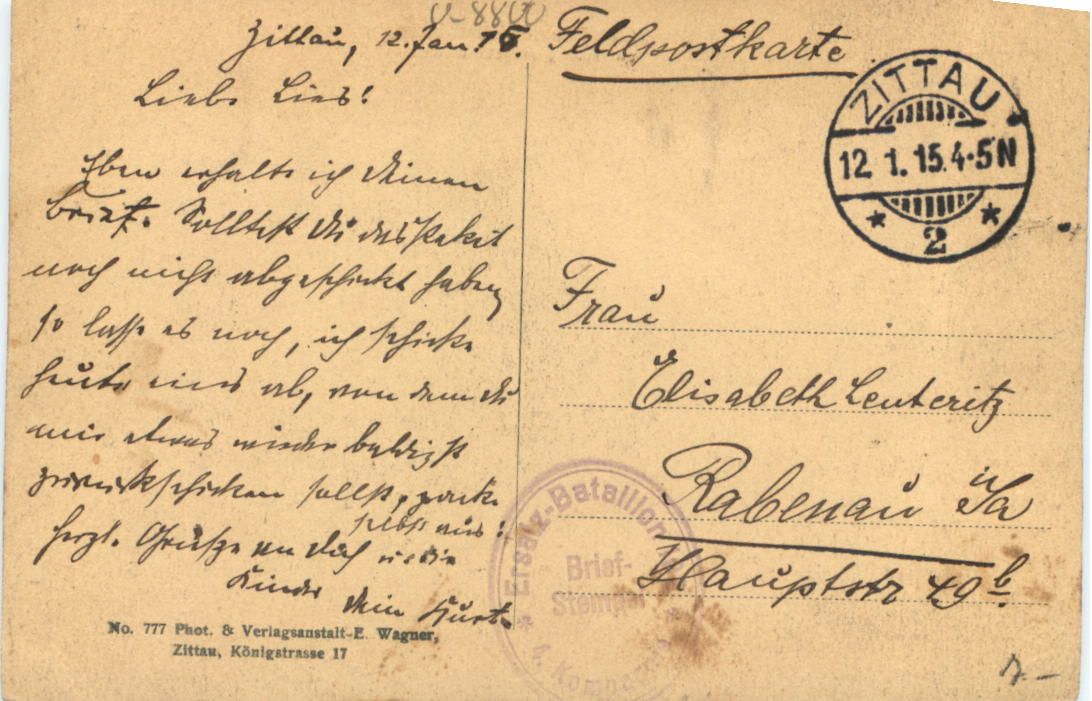 Zittau, 12. Jan. 15.
Liebe Lies!
Eben erhalte ich Deinen
Brief. Solltest Du das Paket
noch nicht abgeschickt haben,
so lasse es noch, ich schicke
heute eins ab, von dem Du
mir etwas wieder baldigst
zurückschicken sollst, packe
selbst aus!
Herzl. Grüße an Dich u. die
Kinder Dein Kurt.
No. 777 Phot. & Verlagsanstalt E. Wagner,
Zittau, Königstrasse 17
Feldpostkarte
ZITTAU
12. 1. 15. 4-5 N
* 2 *
Frau
Elisabeth Leuteritz
Rabenau i/Sa
Hauptstr 49b.
Ersatz-Bataillon
Brief-
Stempel
4. Kompagnie